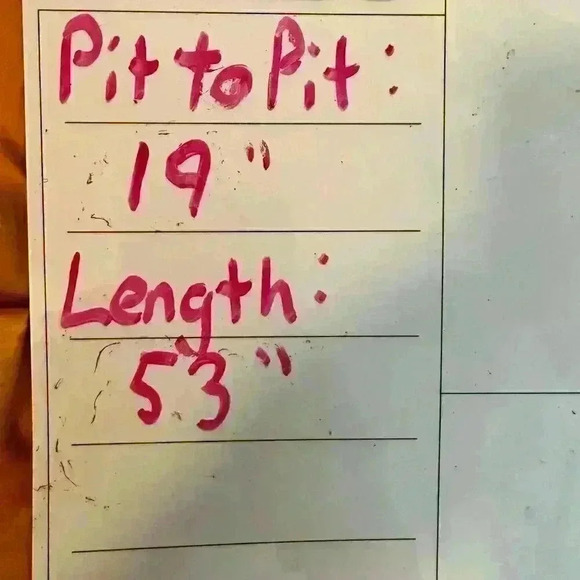 Pit to Pit:
19"
Length:
53"